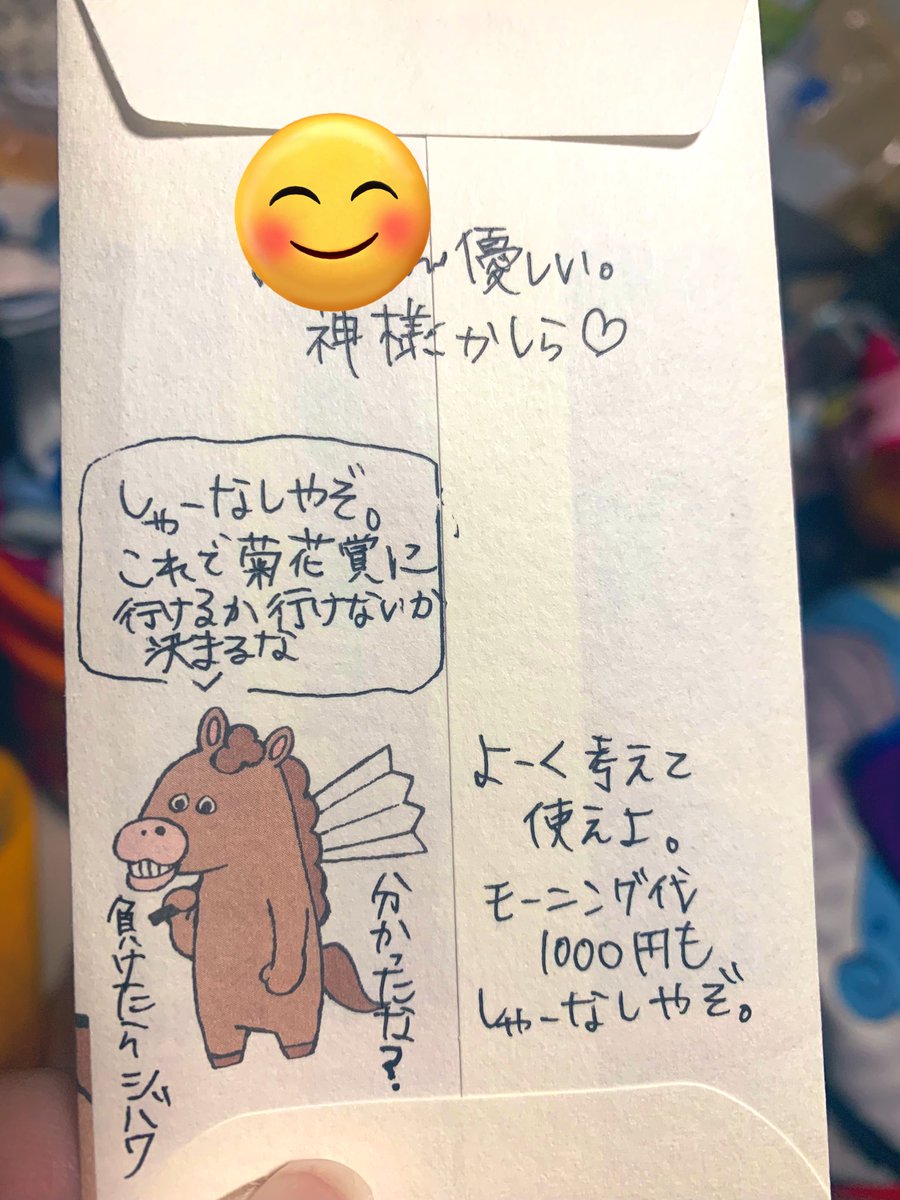 優しい。
神様かしら♡
しゃーなしやぞ。
これで菊花賞に
行けるか行けないか
決まるな
よーく考えて
使えよ。
モーニング代
1000円も
しゃーなしやぞ。
分かったな?
負けたら ジバク